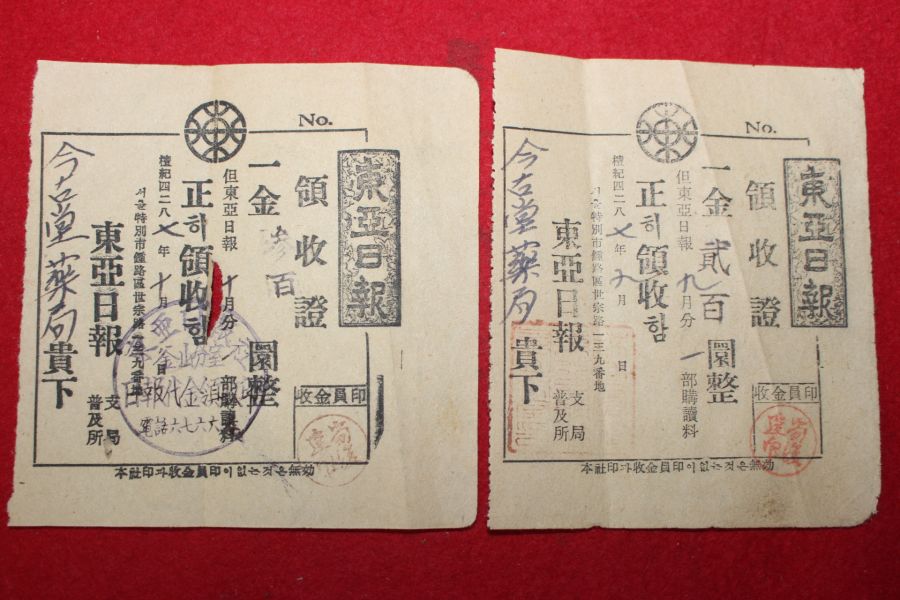 No.
東亞日報
領收證
一金 參百 圜整
但東亞日報 十月分 一部購讀料
正히領收함
檀紀四二八七年十月 日
서울特別市鍾路區世宗路一三九番地
東亞日報 支局
普及所
今古堂藥局 貴下
收金員印
日報代金領
電話六七六六
本社印과收金員印이없는것은無効
No.
東亞日報
領收證
一金 貳百 圜整
但東亞日報 九月分 一部購讀料
正히領收함
檀紀四二八七年九月 日
서울特別市鍾路區世宗路一三九番地
東亞日報 支局
普及所
今古堂藥局 貴下
收金員印
本社印과收金員印이없는것은無効